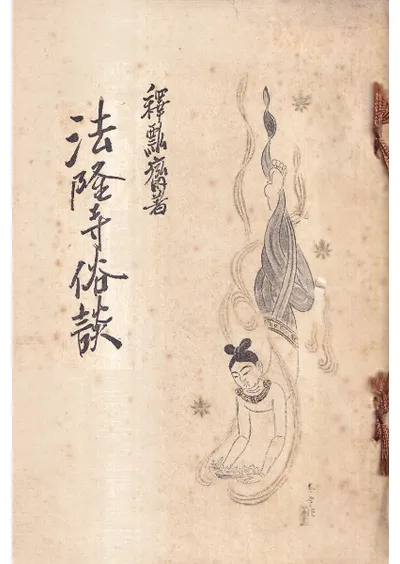 釋瓢齋著
法隆寺俗談